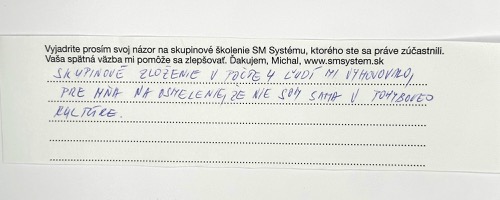 Vyjadrite prosím svoj názor na skupinové školenie SM Systému, ktorého ste sa práve zúčastnili.
Vaša spätná väzba mi pomôže sa zlepšovať. Ďakujem, Michal, www.smsystem.sk
SKUPINOVÉ ZLOŽENIE V POČTE 4 ĽUDÍ MI VYHOVOVALO,
PRE MŇA NA OSMELENIE, ŽE NIE SOM SAMA V
KULTÚRE.